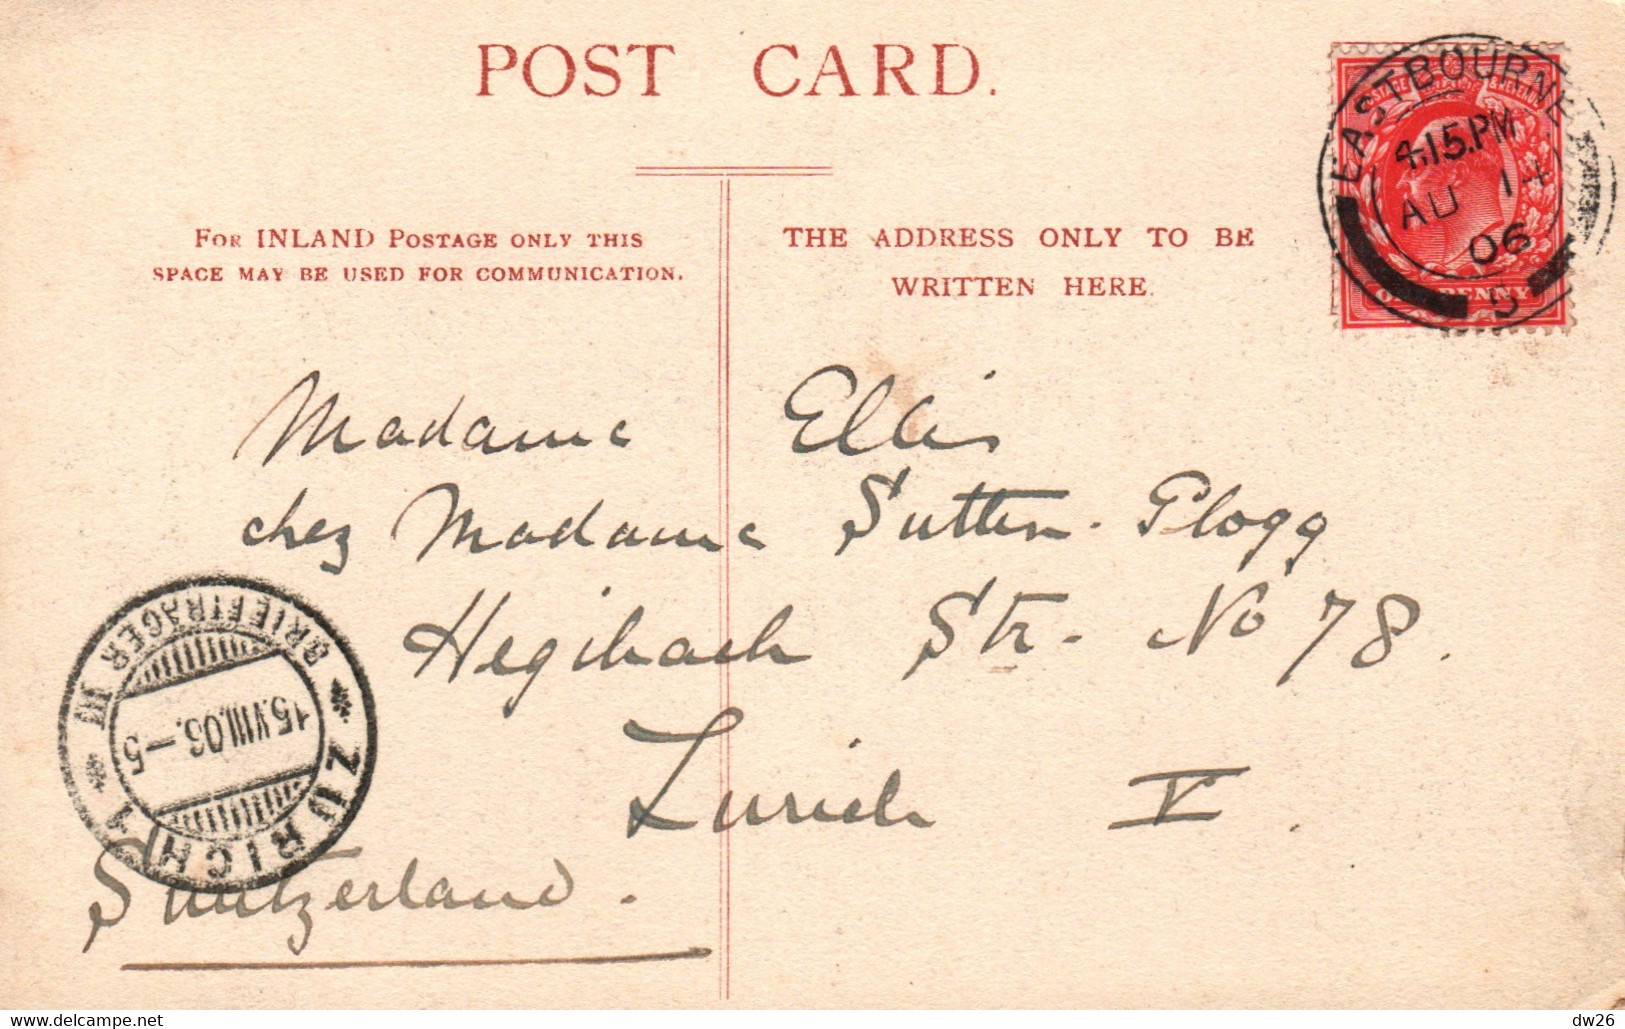 POST CARD.
FOR INLAND POSTAGE ONLY THIS
SPACE MAY BE USED FOR COMMUNICATION.
THE ADDRESS ONLY TO BE
WRITTEN HERE.
EASTBOURNE
4.15.PM
AU 14
06
5
ONE PENNY
Madame Ellis
chez Madame Sutter-Plogg
Hegibach Str. No 78.
Zurich V.
Switzerland.
ZÜRICH 1
BRIEFTRÄGER III
15.VIII.06.-5
dw26